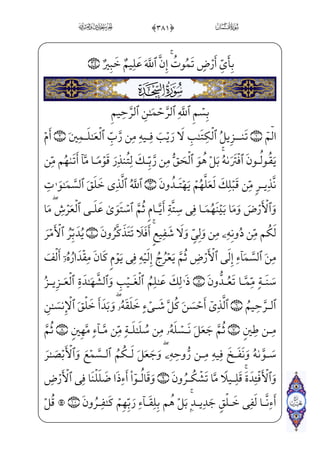 سُورَةُ لُقْمَانَ ﴿٣٨١﴾
بِأَيِّ أَرْضٍ تَمُوتُ ۚ إِنَّ ٱللَّهَ عَلِيمٌ خَبِيرٌۢ ٣٤
سُورَةُ السَّجْدَةِ
بِسْمِ ٱللَّهِ ٱلرَّحْمَٰنِ ٱلرَّحِيمِ
الٓمٓ ١ تَنزِيلُ ٱلْكِتَٰبِ لَا رَيْبَ فِيهِ مِن رَّبِّ ٱلْعَٰلَمِينَ ٢ أَمْ
يَقُولُونَ ٱفْتَرَىٰهُ ۚ بَلْ هُوَ ٱلْحَقُّ مِن رَّبِّكَ لِتُنذِرَ قَوْمًا مَّآ أَتَىٰهُم مِّن
نَّذِيرٍ مِّن قَبْلِكَ لَعَلَّهُمْ يَهْتَدُونَ ٣ ٱللَّهُ ٱلَّذِى خَلَقَ ٱلسَّمَٰوَٰتِ
وَٱلْأَرْضَ وَمَا بَيْنَهُمَا فِى سِتَّةِ أَيَّامٍ ثُمَّ ٱسْتَوَىٰ عَلَى ٱلْعَرْشِ ۖ مَا
لَكُم مِّن دُونِهِۦ مِن وَلِىٍّ وَلَا شَفِيعٍ ۚ أَفَلَا تَتَذَكَّرُونَ ٤ يُدَبِّرُ ٱلْأَمْرَ
مِنَ ٱلسَّمَآءِ إِلَى ٱلْأَرْضِ ثُمَّ يَعْرُجُ إِلَيْهِ فِى يَوْمٍ كَانَ مِقْدَارُهُۥٓ أَلْفَ
سَنَةٍ مِّمَّا تَعُدُّونَ ٥ ذَٰلِكَ عَٰلِمُ ٱلْغَيْبِ وَٱلشَّهَٰدَةِ ٱلْعَزِيزُ
ٱلرَّحِيمُ ٦ ٱلَّذِىٓ أَحْسَنَ كُلَّ شَىْءٍ خَلَقَهُۥ ۖ وَبَدَأَ خَلْقَ ٱلْإِنسَٰنِ
مِن طِينٍ ٧ ثُمَّ جَعَلَ نَسْلَهُۥ مِن سُلَٰلَةٍ مِّن مَّآءٍ مَّهِينٍ ٨ ثُمَّ
سَوَّىٰهُ وَنَفَخَ فِيهِ مِن رُّوحِهِۦ ۖ وَجَعَلَ لَكُمُ ٱلسَّمْعَ وَٱلْأَبْصَٰرَ
وَٱلْأَفْـِٔدَةَ ۚ قَلِيلًا مَّا تَشْكُرُونَ ٩ وَقَالُوٓا۟ أَءِذَا ضَلَلْنَا فِى ٱلْأَرْضِ
أَءِنَّا لَفِى خَلْقٍ جَدِيدٍۭ ۚ بَلْ هُم بِلِقَآءِ رَبِّهِمْ كَٰفِرُونَ ١٠ ۞ قُلْ